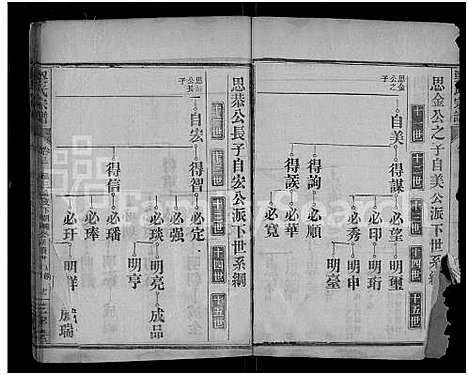 思金公之子自美公派下世系綱
思金公之子
十一世
十二世
十三世
十四世
十五世
自美
得謀
得詢
得諼
必望
必印
必秀
必順
必華
必寬
明璽
明珩
明申
明臺
思恭公長子自宏公派下世系綱
思恭公長子
十一世
十二世
十三世
十四世
十五世
自宏
得智
得信
必定
必强
必琰
必璠
必琫
必玗
明亮
明亨
明祥
成品
成瑞